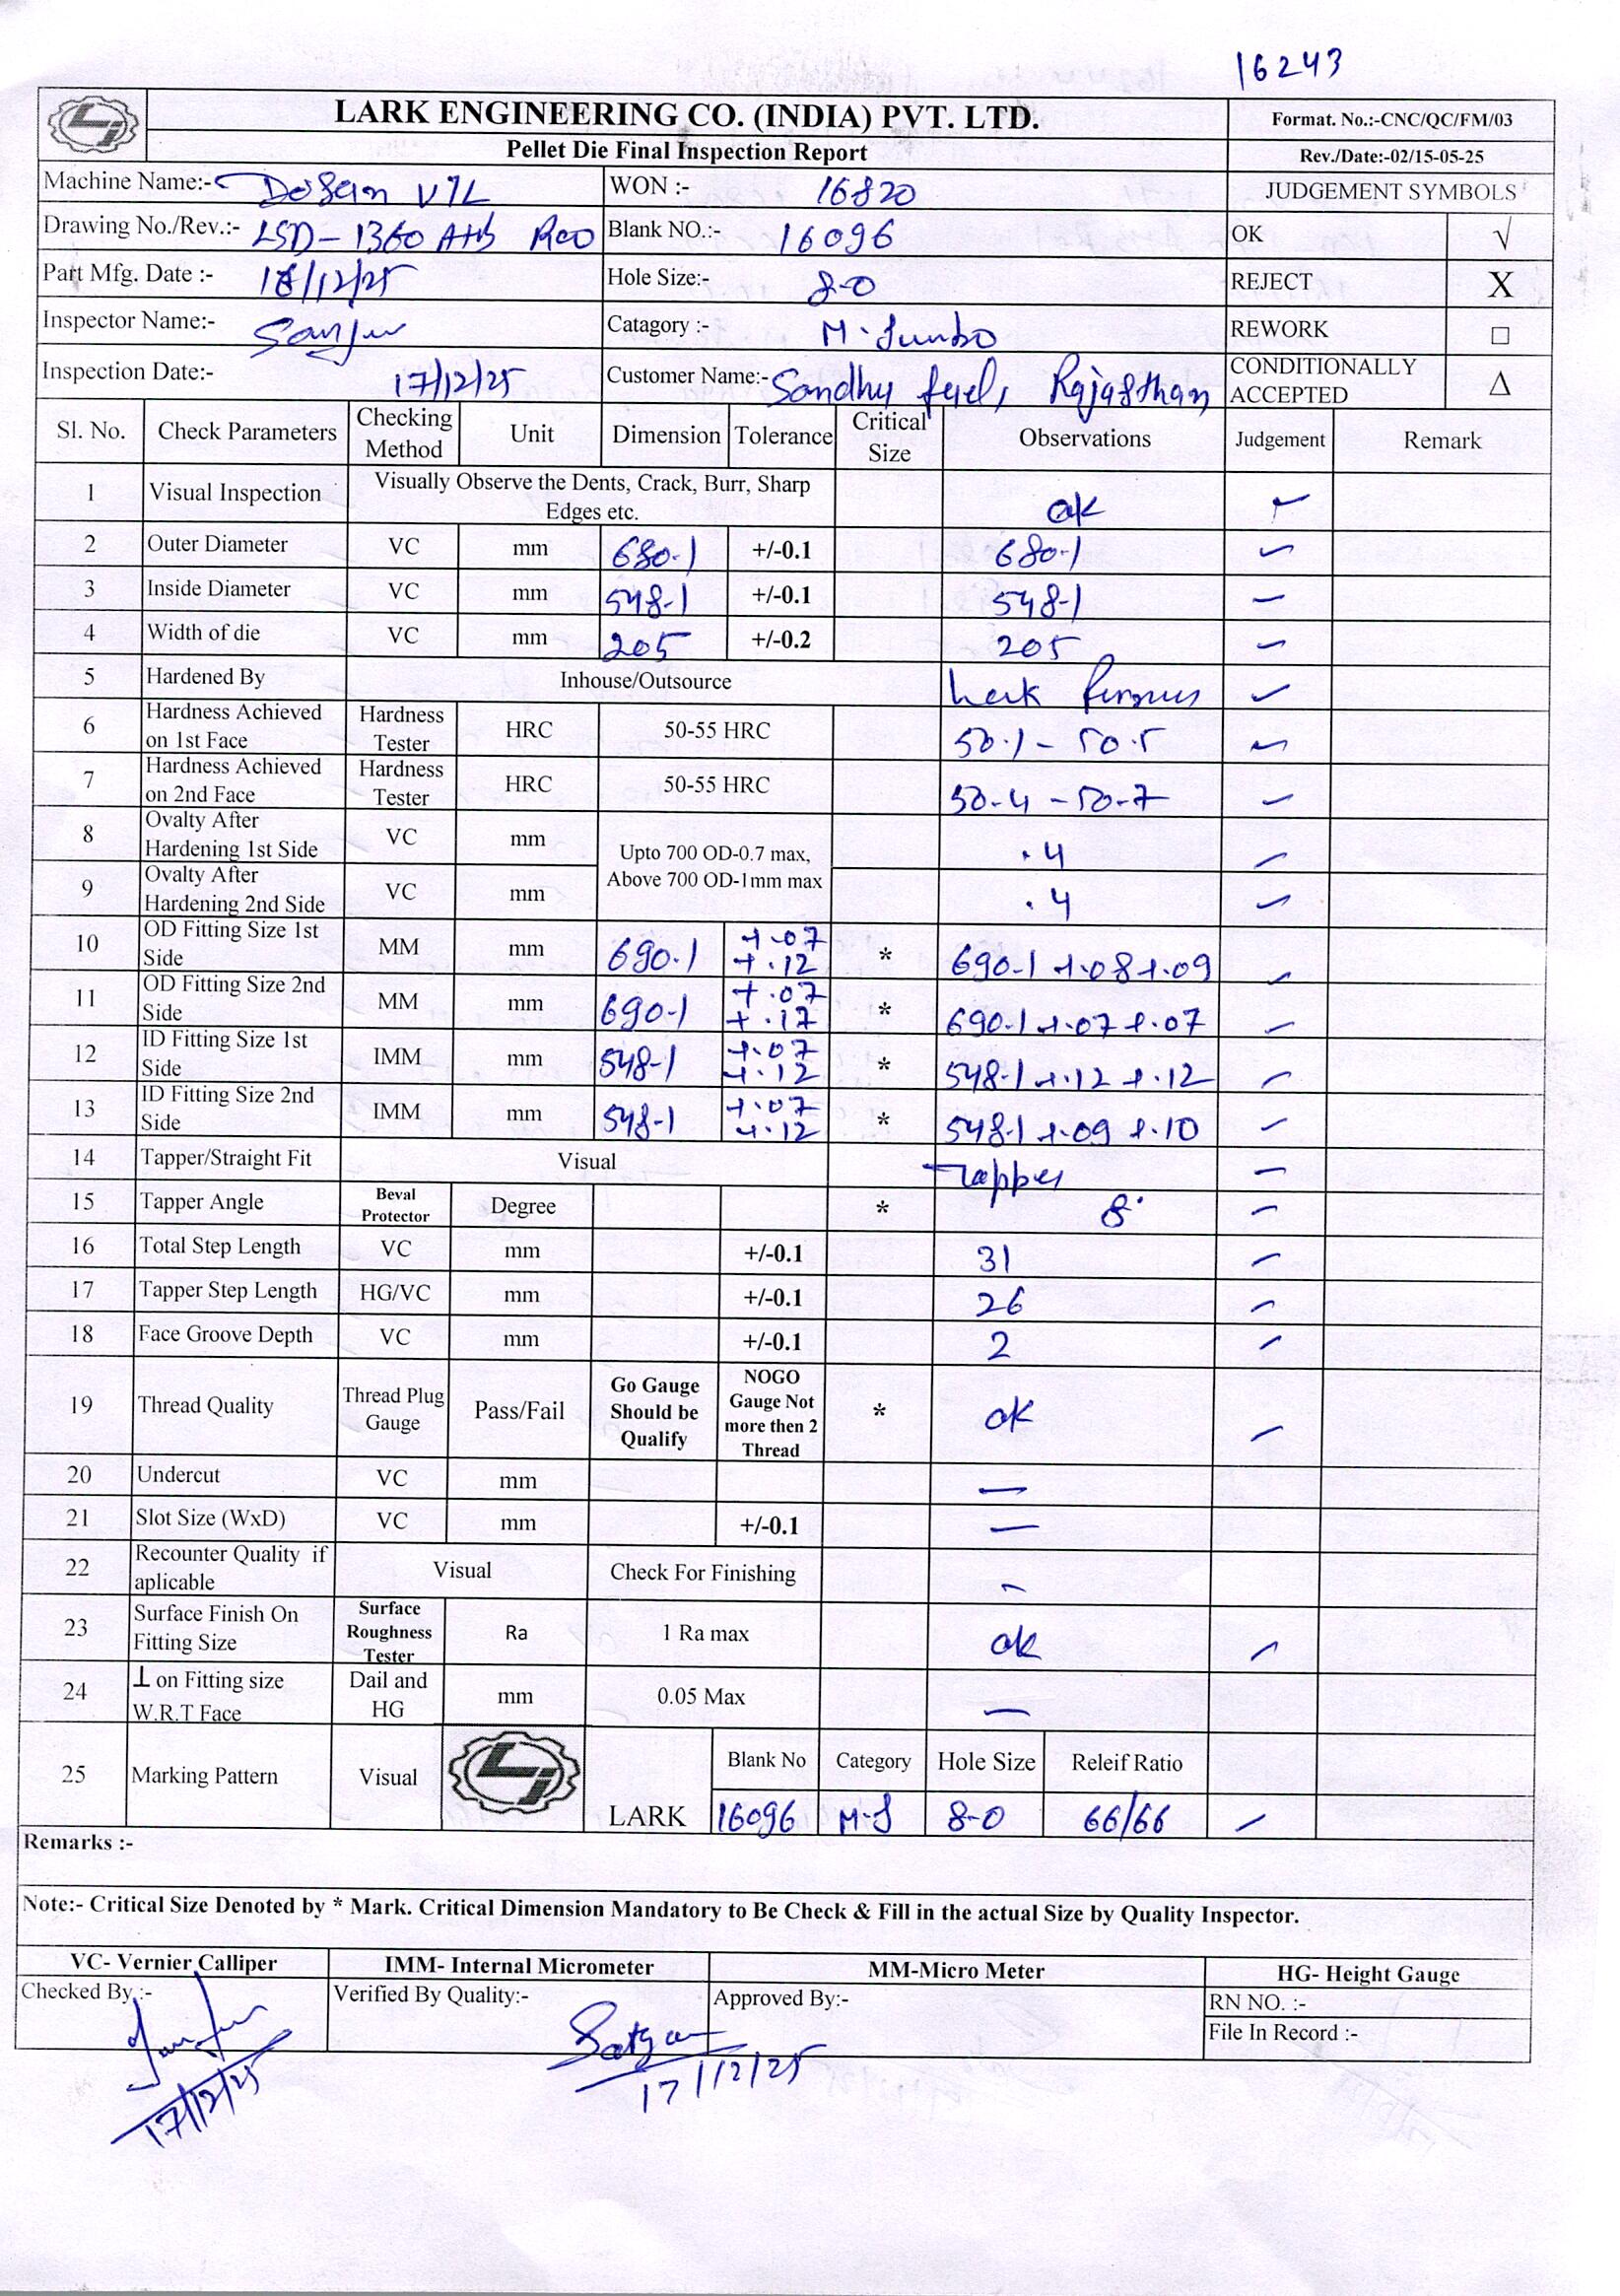 16243
LARK ENGINEERING CO. (INDIA) PVT. LTD.
Format. No.:-CNC/QC/FM/03
Pellet Die Final Inspection Report
Rev./Date:-02/15-05-25
Machine Name:- Dosan VTL WON :- 16820 JUDGEMENT SYMBOLS
Drawing No./Rev.:- LSD-1360 AHB R00 Blank NO.:- 16096 OK √
Part Mfg. Date :- 16/12/25 Hole Size:- 8-0 REJECT X
Inspector Name:- Sanju Catagory :- M-Jumbo REWORK □
Inspection Date:- 17/12/25 Customer Name:- Sandhu fuel, Rajasthan CONDITIONALLY ACCEPTED Δ
Sl. No. Check Parameters Checking Method Unit Dimension Tolerance Critical Size Observations Judgement Remark
1 Visual Inspection Visually Observe the Dents, Crack, Burr, Sharp Edges etc. ok ✓
2 Outer Diameter VC mm 680.1 +/-0.1 680-1 ✓
3 Inside Diameter VC mm 548-1 +/-0.1 548-1 ✓
4 Width of die VC mm 205 +/-0.2 205 ✓
5 Hardened By Inhouse/Outsource Lark ✓
6 Hardness Achieved on 1st Face Hardness Tester HRC 50-55 HRC 50.1 - 50.5 ✓
7 Hardness Achieved on 2nd Face Hardness Tester HRC 50-55 HRC 50-4 - 50-7 ✓
8 Ovalty After Hardening 1st Side VC mm Upto 700 OD-0.7 max, Above 700 OD-1mm max .4 ✓
9 Ovalty After Hardening 2nd Side VC mm .4 ✓
10 OD Fitting Size 1st Side MM mm 690.1 +.07 +.12 * 690-1 +.08 +.09 ✓
11 OD Fitting Size 2nd Side MM mm 690-1 +.07 +.12 * 690-1 +.07 +.07 ✓
12 ID Fitting Size 1st Side IMM mm 548-1 +.07 +.12 * 548-1 +.12 +.12 ✓
13 ID Fitting Size 2nd Side IMM mm 548-1 +.07 +.12 * 548-1 +.09 +.10 ✓
14 Tapper/Straight Fit Visual Tapper ✓
15 Tapper Angle Beval Protector Degree * 8° ✓
16 Total Step Length VC mm +/-0.1 31 ✓
17 Tapper Step Length HG/VC mm +/-0.1 26 ✓
18 Face Groove Depth VC mm +/-0.1 2 ✓
19 Thread Quality Thread Plug Gauge Pass/Fail Go Gauge Should be Qualify NOGO Gauge Not more then 2 Thread * ok ✓
20 Undercut VC mm —
21 Slot Size (WxD) VC mm +/-0.1 —
22 Recounter Quality if aplicable Visual Check For Finishing -
23 Surface Finish On Fitting Size Surface Roughness Tester Ra 1 Ra max ok ✓
24 ⊥ on Fitting size W.R.T Face Dail and HG mm 0.05 Max —
25 Marking Pattern Visual LARK Blank No Category Hole Size Releif Ratio
16096 M-J 8-0 66/66 ✓
Remarks :-
Note:- Critical Size Denoted by * Mark. Critical Dimension Mandatory to Be Check & Fill in the actual Size by Quality Inspector.
VC- Vernier Calliper IMM- Internal Micrometer MM-Micro Meter HG- Height Gauge
Checked By :- Verified By Quality:- Approved By:- RN NO. :-
File In Record :-
Sanju Satya
17/12/25 17/12/25